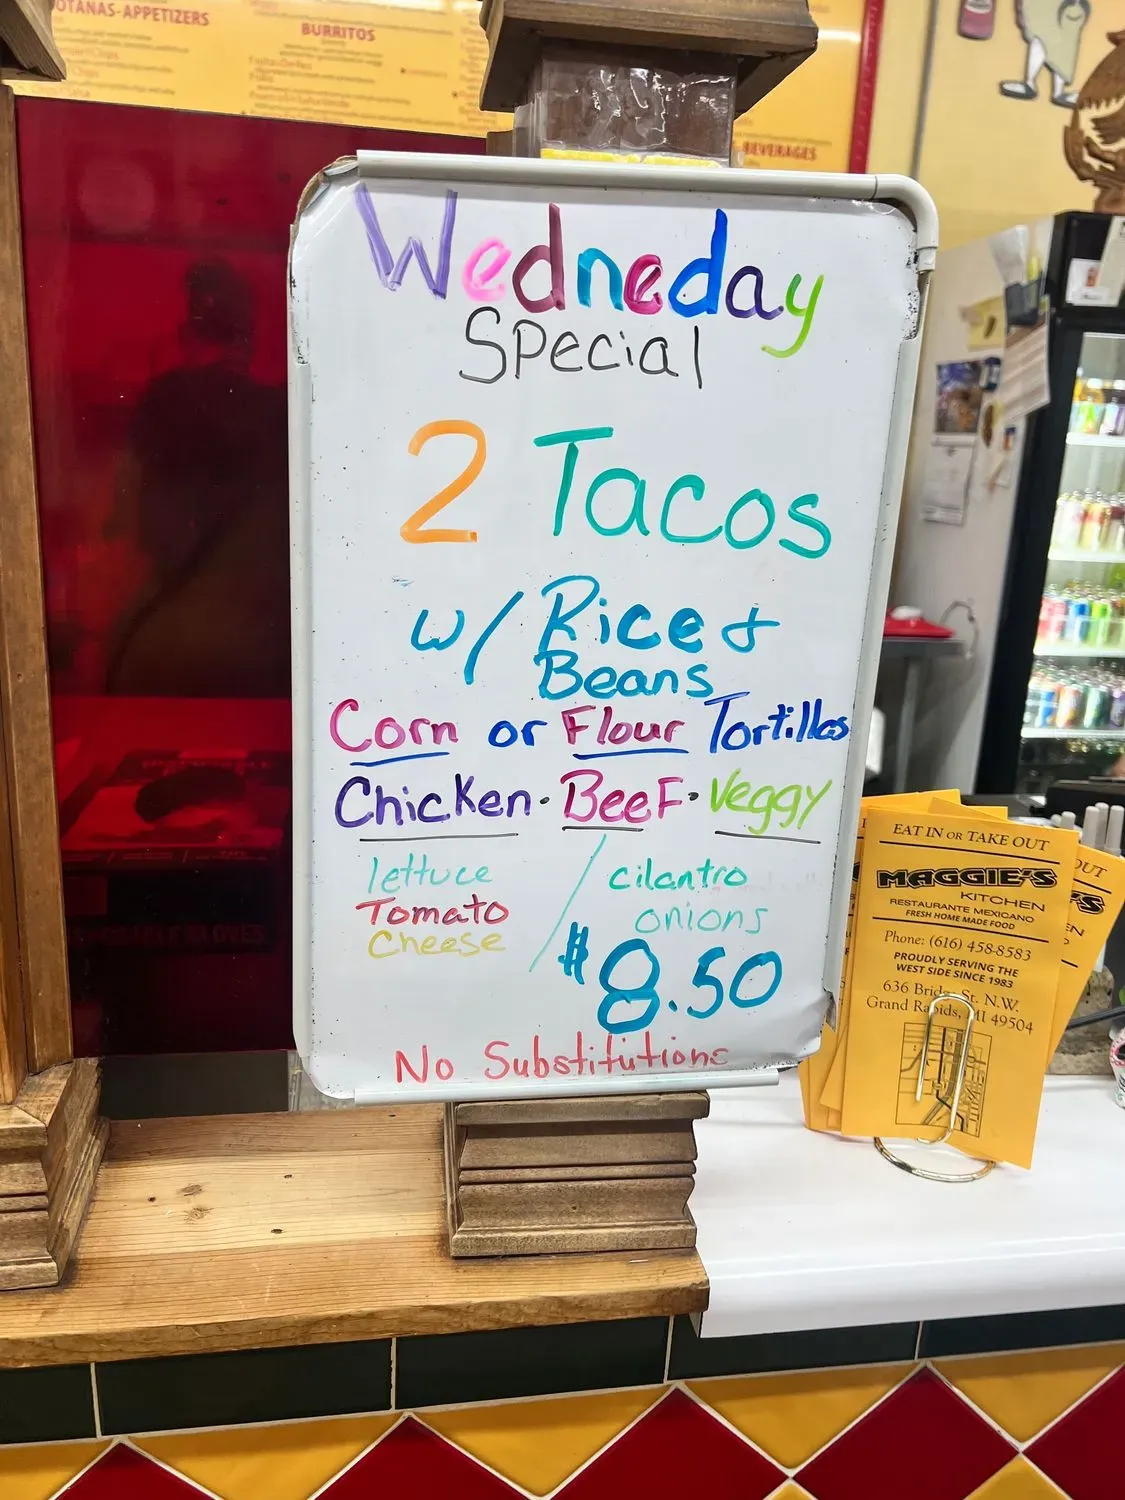 OTANAS-APPETIZERS
BURRITOS
BEVERAGES
Wedneday
Special
2 Tacos
w/ Rice &
Beans
Corn or Flour Tortillas
Chicken · Beef · Veggy
lettuce
Tomato
Cheese
/
cilantro
onions
$8.50
No Substitutions
EAT IN OR TAKE OUT
MAGGIE'S
KITCHEN
RESTAURANTE MEXICANO
FRESH HOME MADE FOOD
Phone: (616) 458-8583
PROUDLY SERVING THE
WEST SIDE SINCE 1983
636 Bridge St. N.W.
Grand Rapids, MI 49504
OUT